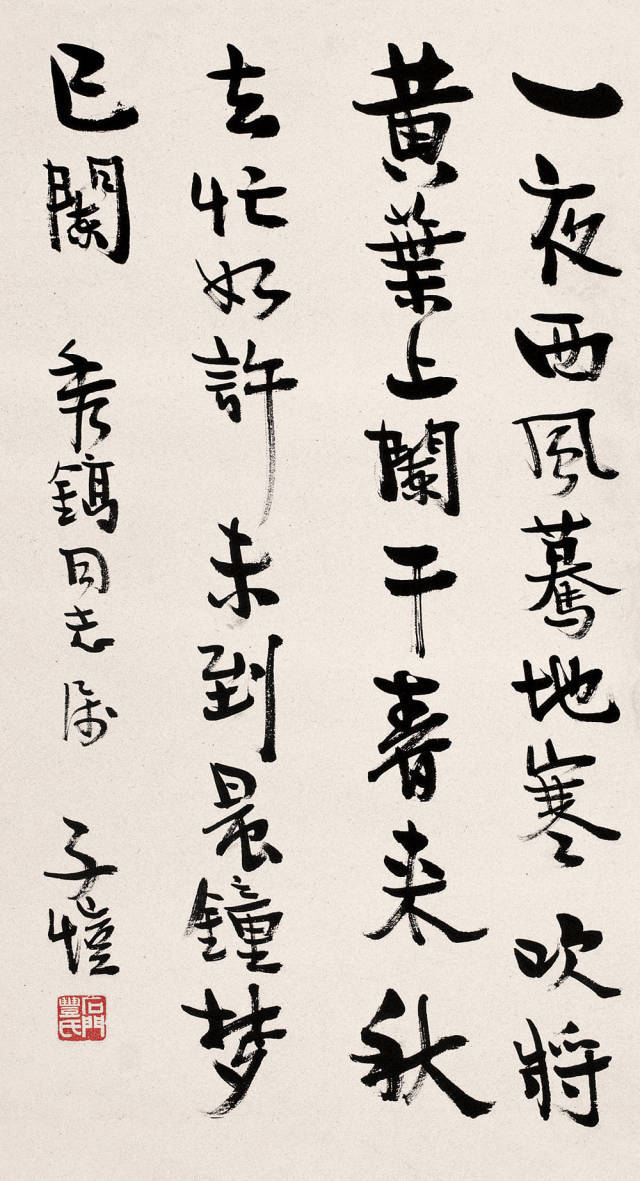 一夜西風驀地寒吹將
黃葉上闌干春來秋
去忙如許未到晨鐘梦
已闌 秀鎬同志屬 子愷
石門豐氏